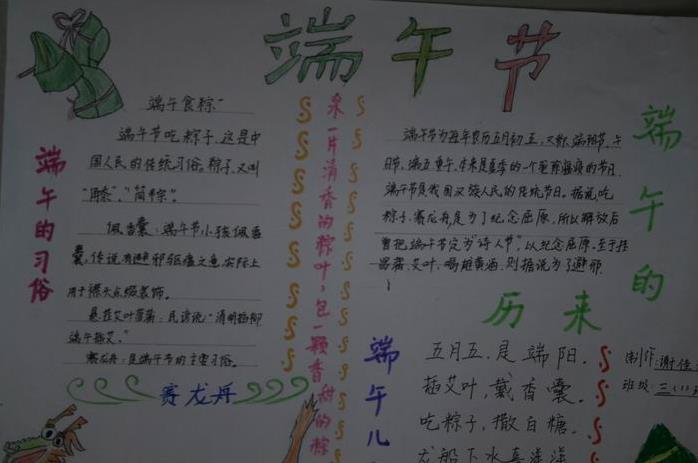 端午节
端午的习俗
端午食粽
端午节吃粽子,这是中
国人民的传统习俗。粽子,又叫
"筒粽"。
佩香囊:端午节小孩佩香
囊,传说有避邪驱瘟之意,实际上
用于襟头点缀装饰。
悬挂艾叶菖蒲:民谚说:"清明插柳
端午插艾。"
赛龙舟:是端午节的主要习俗。
赛龙舟
采一片清香的粽叶,包一颗香甜的粽
端午节为每年农历五月初五,又称端阳节、午
日节、
端午节是我国汉族人民的传统节日。据说,吃
粽子,赛龙舟是为了纪念屈原,所以解放后
曾把端午节定为"诗人节",以纪念屈原。至于挂
菖蒲、艾叶,喝雄黄酒,则据说为了避邪
端午的
历来
端午儿
五月五,是端阳。
插艾叶,戴香囊。
吃粽子,撒白糖。
龙船下水喜洋洋
制作:谢佳
班级:三